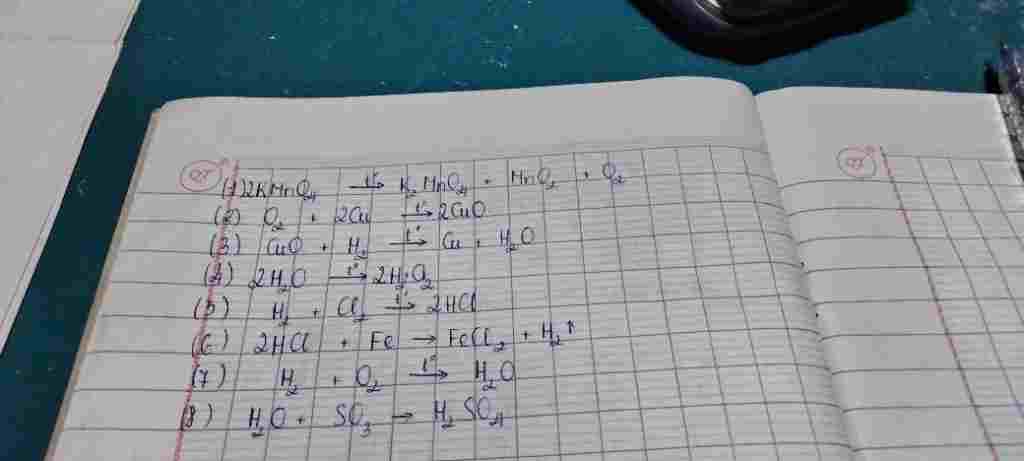 (1) 2KMnO4 —t°→ K2MnO4 + MnO2 + O2
(2) O2 + 2Cu —t°→ 2CuO
(3) CuO + H2 —t°→ Cu + H2O
(4) 2H2O —t°→ 2H2O2
(5) H2 + Cl2 —t°→ 2HCl
(6) 2HCl + Fe → FeCl2 + H2↑
(7) H2 + O2 —t°→ H2O
(8) H2O + SO3 → H2SO4